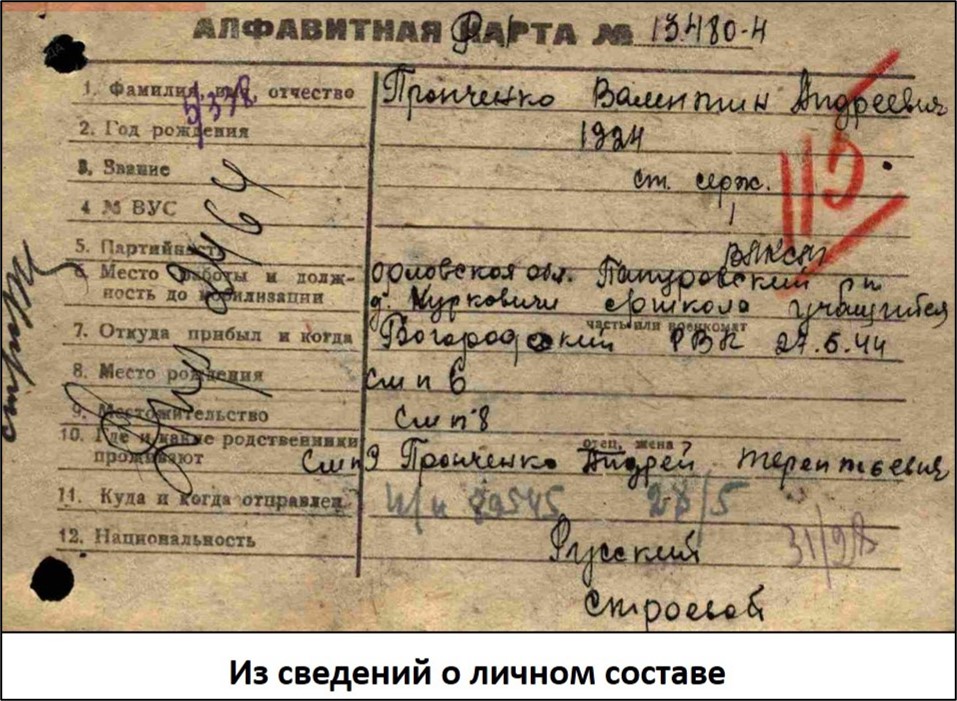 АЛФАВИТНАЯ КАРТА № 13480-4
1. Фамилия, имя, отчество Пронченко Валентин Андреевич
5/378
2. Год рождения 1924
115
3. Звание ст. серж.
4 № ВУС 1
5. Партийность ВЛКСМ
6. Место работы и долж-
ность до мобилизации
орловская обл.
д. Курковичи ср школа учащийся
часть или военкомат
7. Откуда прибыл и когда Богородский РВК 27.5.44
8. Место рождения см п 6
9. Местожительство см п 8
отец, жена
10. Где и какие родственники
проживают см п 9 Пронченко Андрей Терентьевич
11. Куда и когда отправлен 28/5
12. Национальность Русский
строевой
Из сведений о личном составе